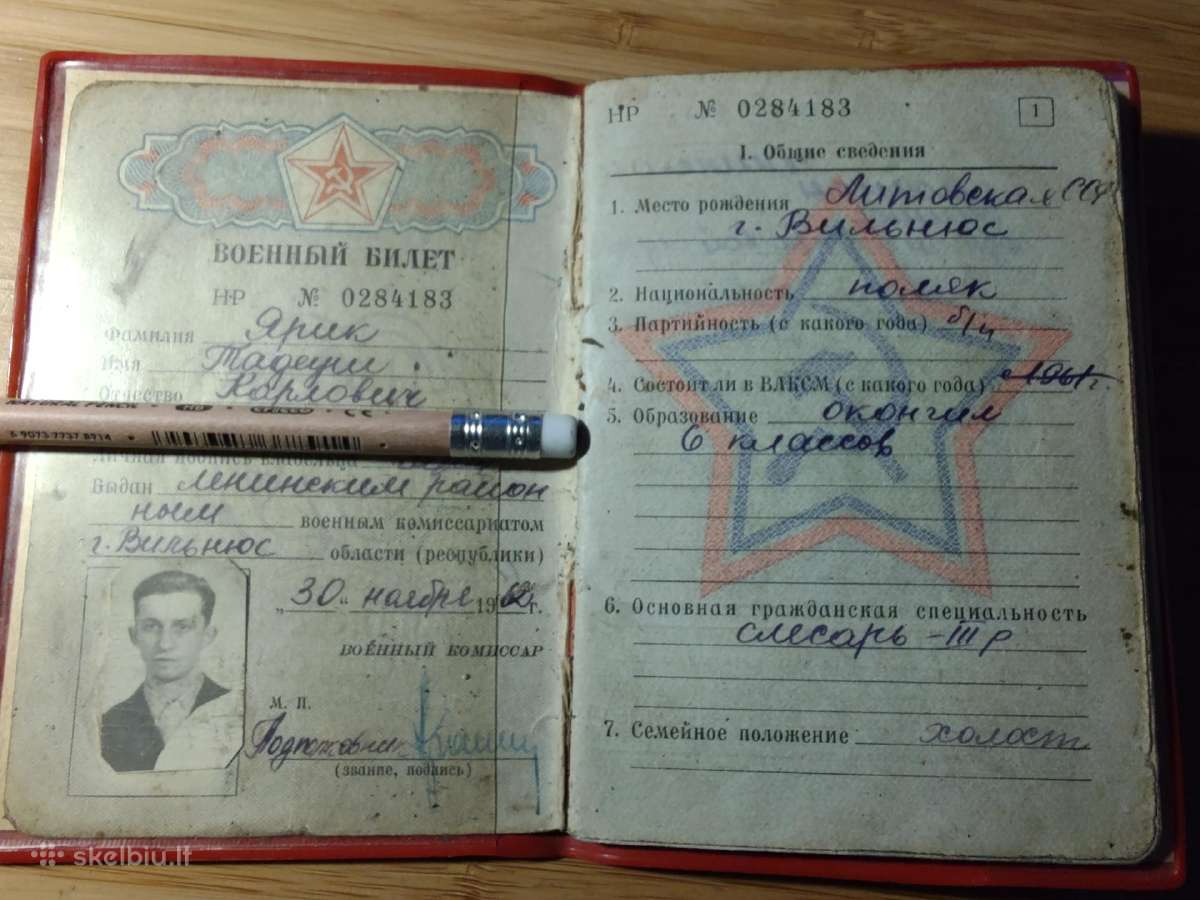 ВОЕННЫЙ БИЛЕТ
НР № 0284183
Фамилия Ярик
Имя Тадеуш
Отчество Карлович
9073-7737 8714
Личная подпись владельца
Выдан Ленинским район
ным военным комиссариатом
г. Вильнюс области (республики)
„30" ноября 1962 г.
ВОЕННЫЙ КОМИССАР
М. П.
Подполковник
(звание, подпись)
НР № 0284183
1
I. Общие сведения
1. Место рождения Литовская ССР
г. Вильнюс
2. Национальность поляк
3. Партийность (с какого года) б/п
4. Состоит ли в ВЛКСМ (с какого года) 1961 г.
5. Образование окончил
6 классов
6. Основная гражданская специальность
слесарь – III р
7. Семейное положение холост
skelbiu.lt